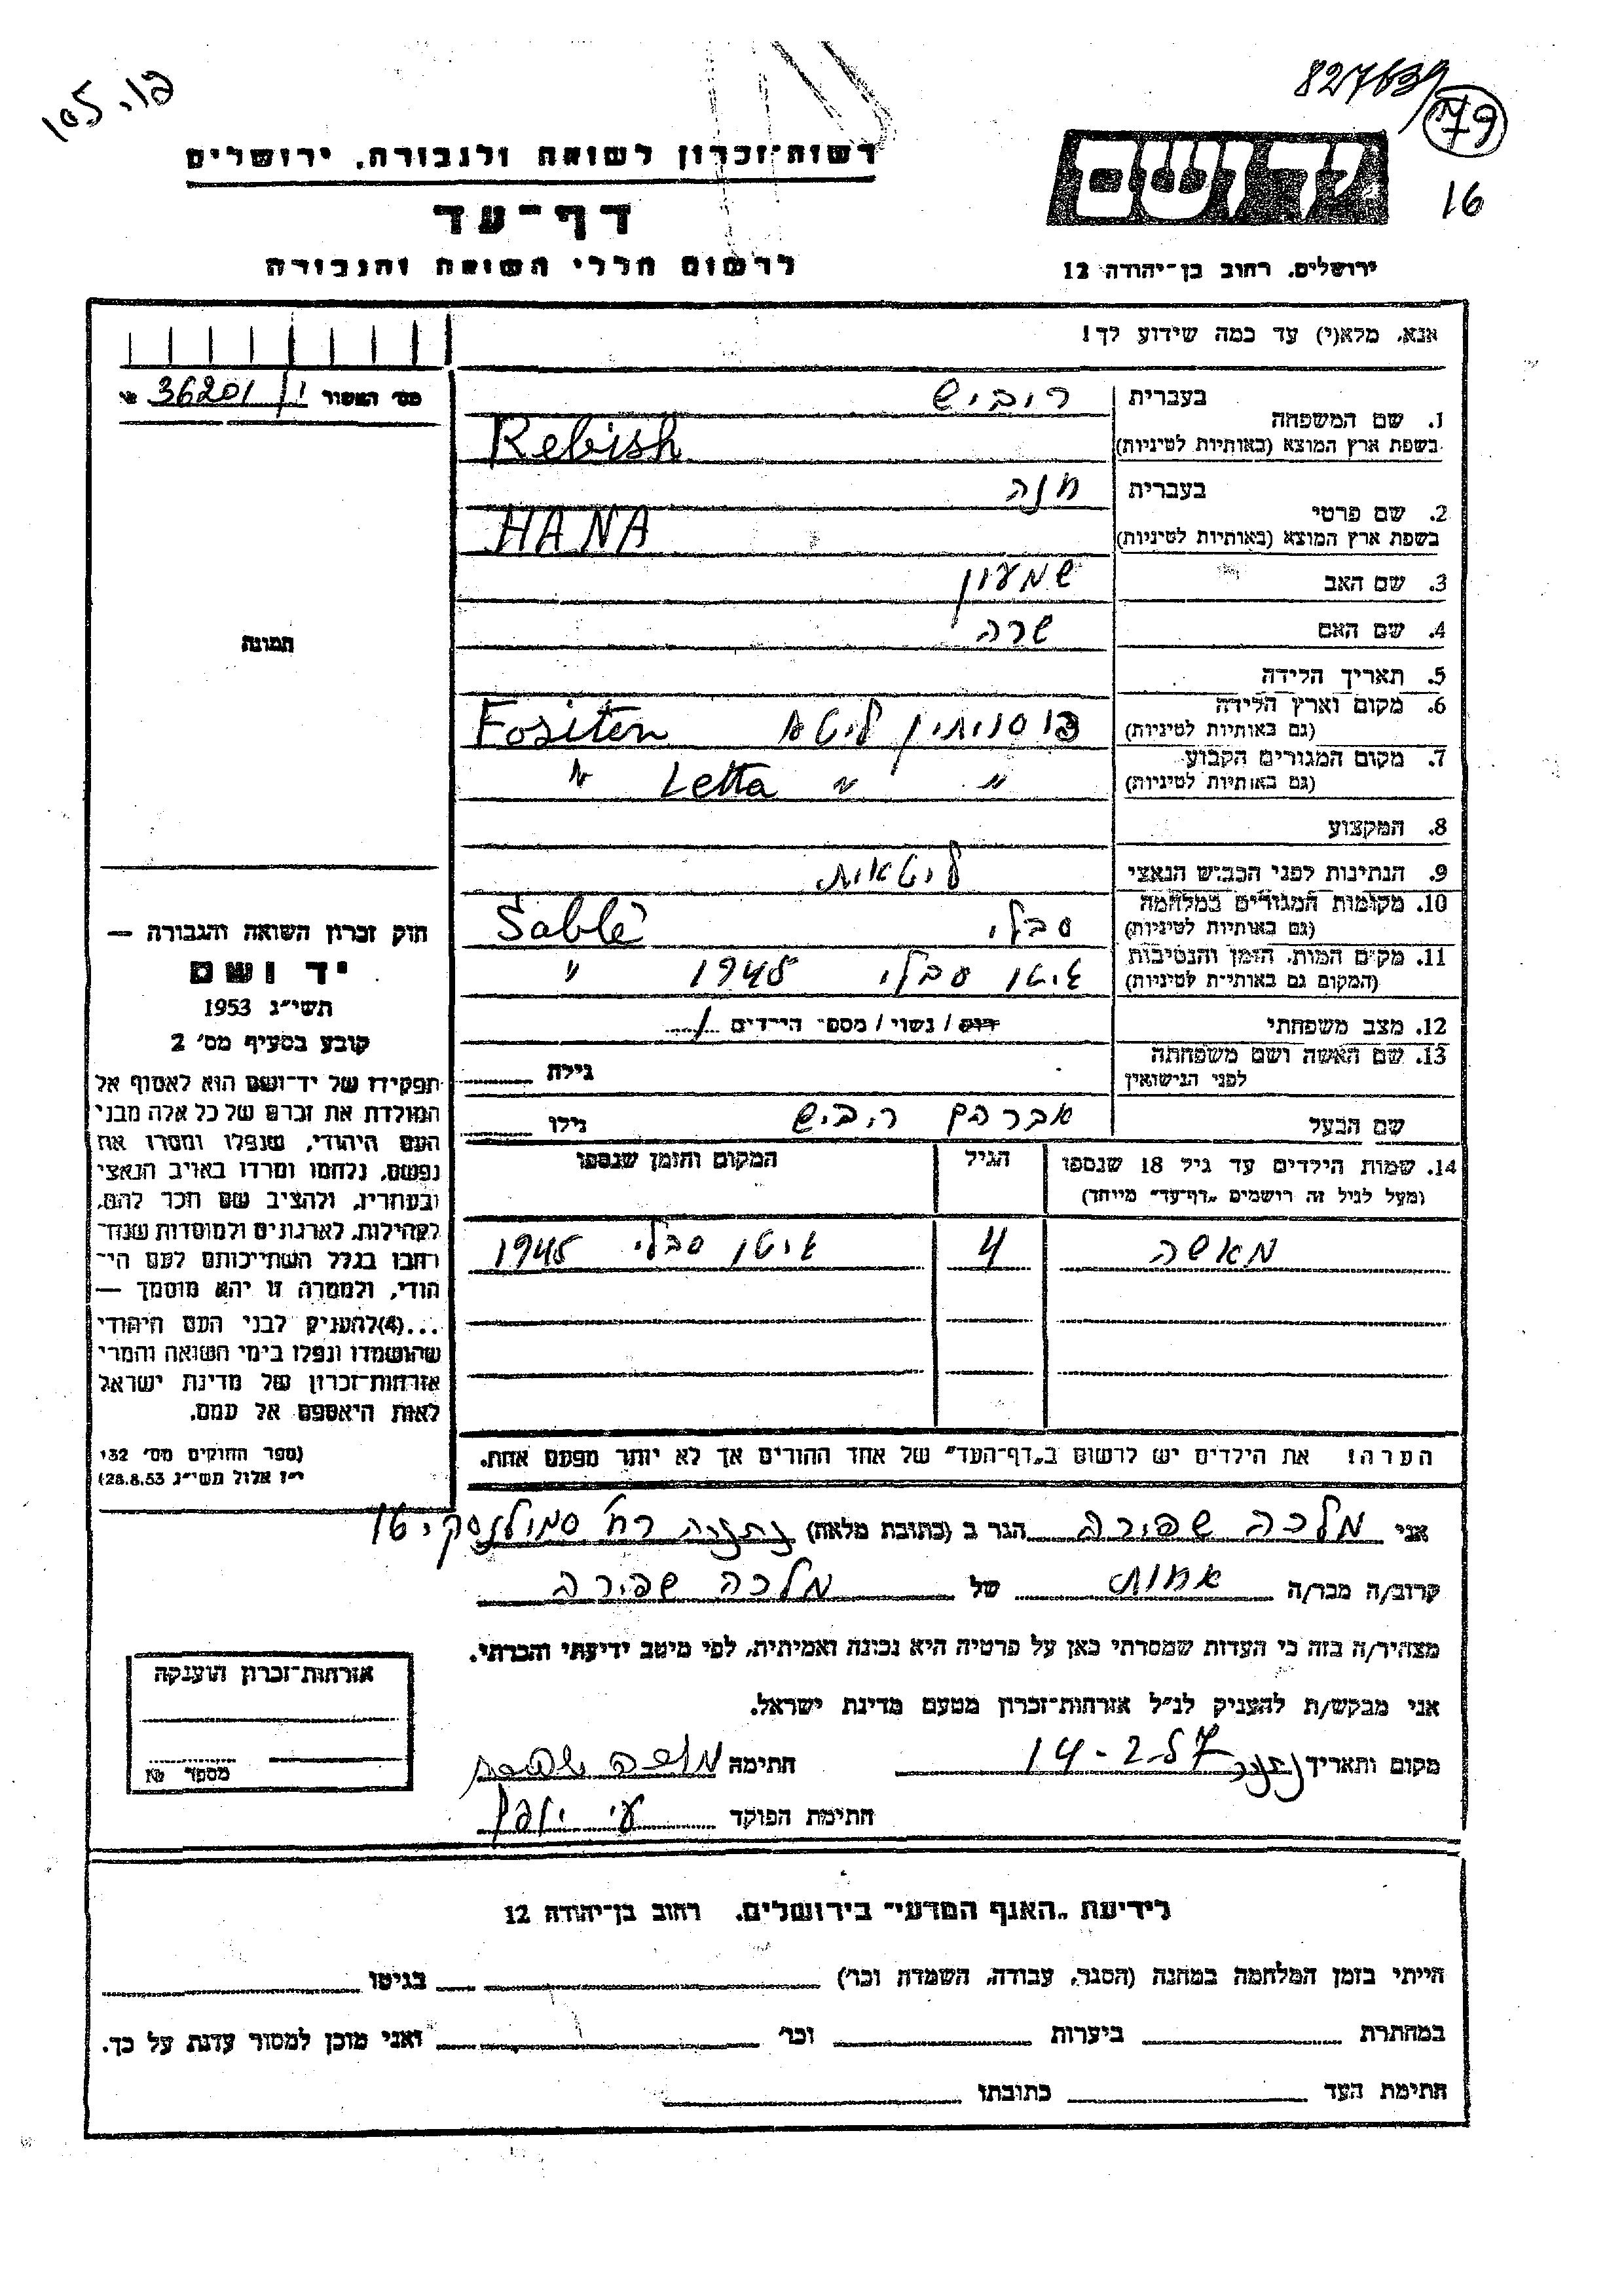 105.12
827639
79
16
רשות־זכרון לשואה ולגבורה, ירושלים
יד ושם
דף־עד
לרשום חללי השואה והגבורה
ירושלים, רחוב בן־יהודה 12
אנא, מלא(י) עד כמה שידוע לך!
מס' האשור 36201/ו
בעברית ריביש
1. שם המשפחה
בשפת ארץ המוצא (באותיות לטיניות) Rebish
בעברית חנה
2. שם פרטי
בשפת ארץ המוצא (באותיות לטיניות) HANA
3. שם האב שמעון
4. שם האם שרה
תמונה
5. תאריך הלידה
6. מקום וארץ הלידה
(גם באותיות לטיניות) ליטא Fositen
7. מקום המגורים הקבוע
(גם באותיות לטיניות) " " Letta "
8. המקצוע
9. הנתינות לפני הכבוש הנאצי ליטאית
10. מקומות המגורים במלחמה
(גם באותיות לטיניות) סבלי Sable
11. מקום המות, הזמן והנסיבות
(המקום גם באותיות לטיניות) גיטו סבלי 1945 "
12. מצב משפחתי רווק / נשוי / מספר הילדים 1
13. שם האשה ושם משפחתה
לפני הנישואין גילה
שם הבעל אברהם ריביש גילו
14. שמות הילדים עד גיל 18 שנספו הגיל המקום והזמן שנספו
(מעל לגיל זה רושמים „דף־עד" מיוחד)
מאשה 4 גיטו סבלי 1945
חוק זכרון השואה והגבורה —
יד ושם
תשי"ג 1953
קובע בסעיף מס' 2
תפקידו של יד־ושם הוא לאסוף אל
המולדת את זכרם של כל אלה מבני
העם היהודי, שנפלו ומסרו את
נפשם, נלחמו ומרדו באויב הנאצי
ובעוזריו, ולהציב שם וזכר להם,
לקהילות, לארגונים ולמוסדות שנח־
רבו בגלל השתייכותם לעם הי־
הודי, ולמטרה זו יהא מוסמך —
...(4)להעניק לבני העם היהודי
שהושמדו ונפלו בימי השואה והמרי
אזרחות־זכרון של מדינת ישראל
לאות היאספם אל עמם.
(ספר החוקים מס' 132
י"ז אלול תשי"ג 28.8.53)
הערה! את הילדים יש לרשום ב„דף־העד" של אחד ההורים אך לא יותר מפעם אחת.
אני מלכה שפירה הגר ב (כתובת מלאה) נתניה רח' סמולנסקי 16
קרוב/ה מכר/ה אחות של מלכה שפירה
מצהיר/ה בזה כי העדות שמסרתי כאן על פרטיה היא נכונה ואמיתית, לפי מיטב ידיעתי והכרתי.
אני מבקש/ת להעניק לנ"ל אזרחות־זכרון מטעם מדינת ישראל.
מקום ותאריך נתניה 14-2.57 חתימה מלכה שפירה
חתימת הפוקד
אזרחות־זכרון הוענקה
מספר №
לידיעת „האגף המדעי" בירושלים, רחוב בן־יהודה 12
הייתי בזמן המלחמה במחנה (הסגר, עבודה, השמדה וכו') בגיטו
במחתרת ביערות וכו' ואני מוכן למסור עדות על כך.
חתימת העד כתובתו